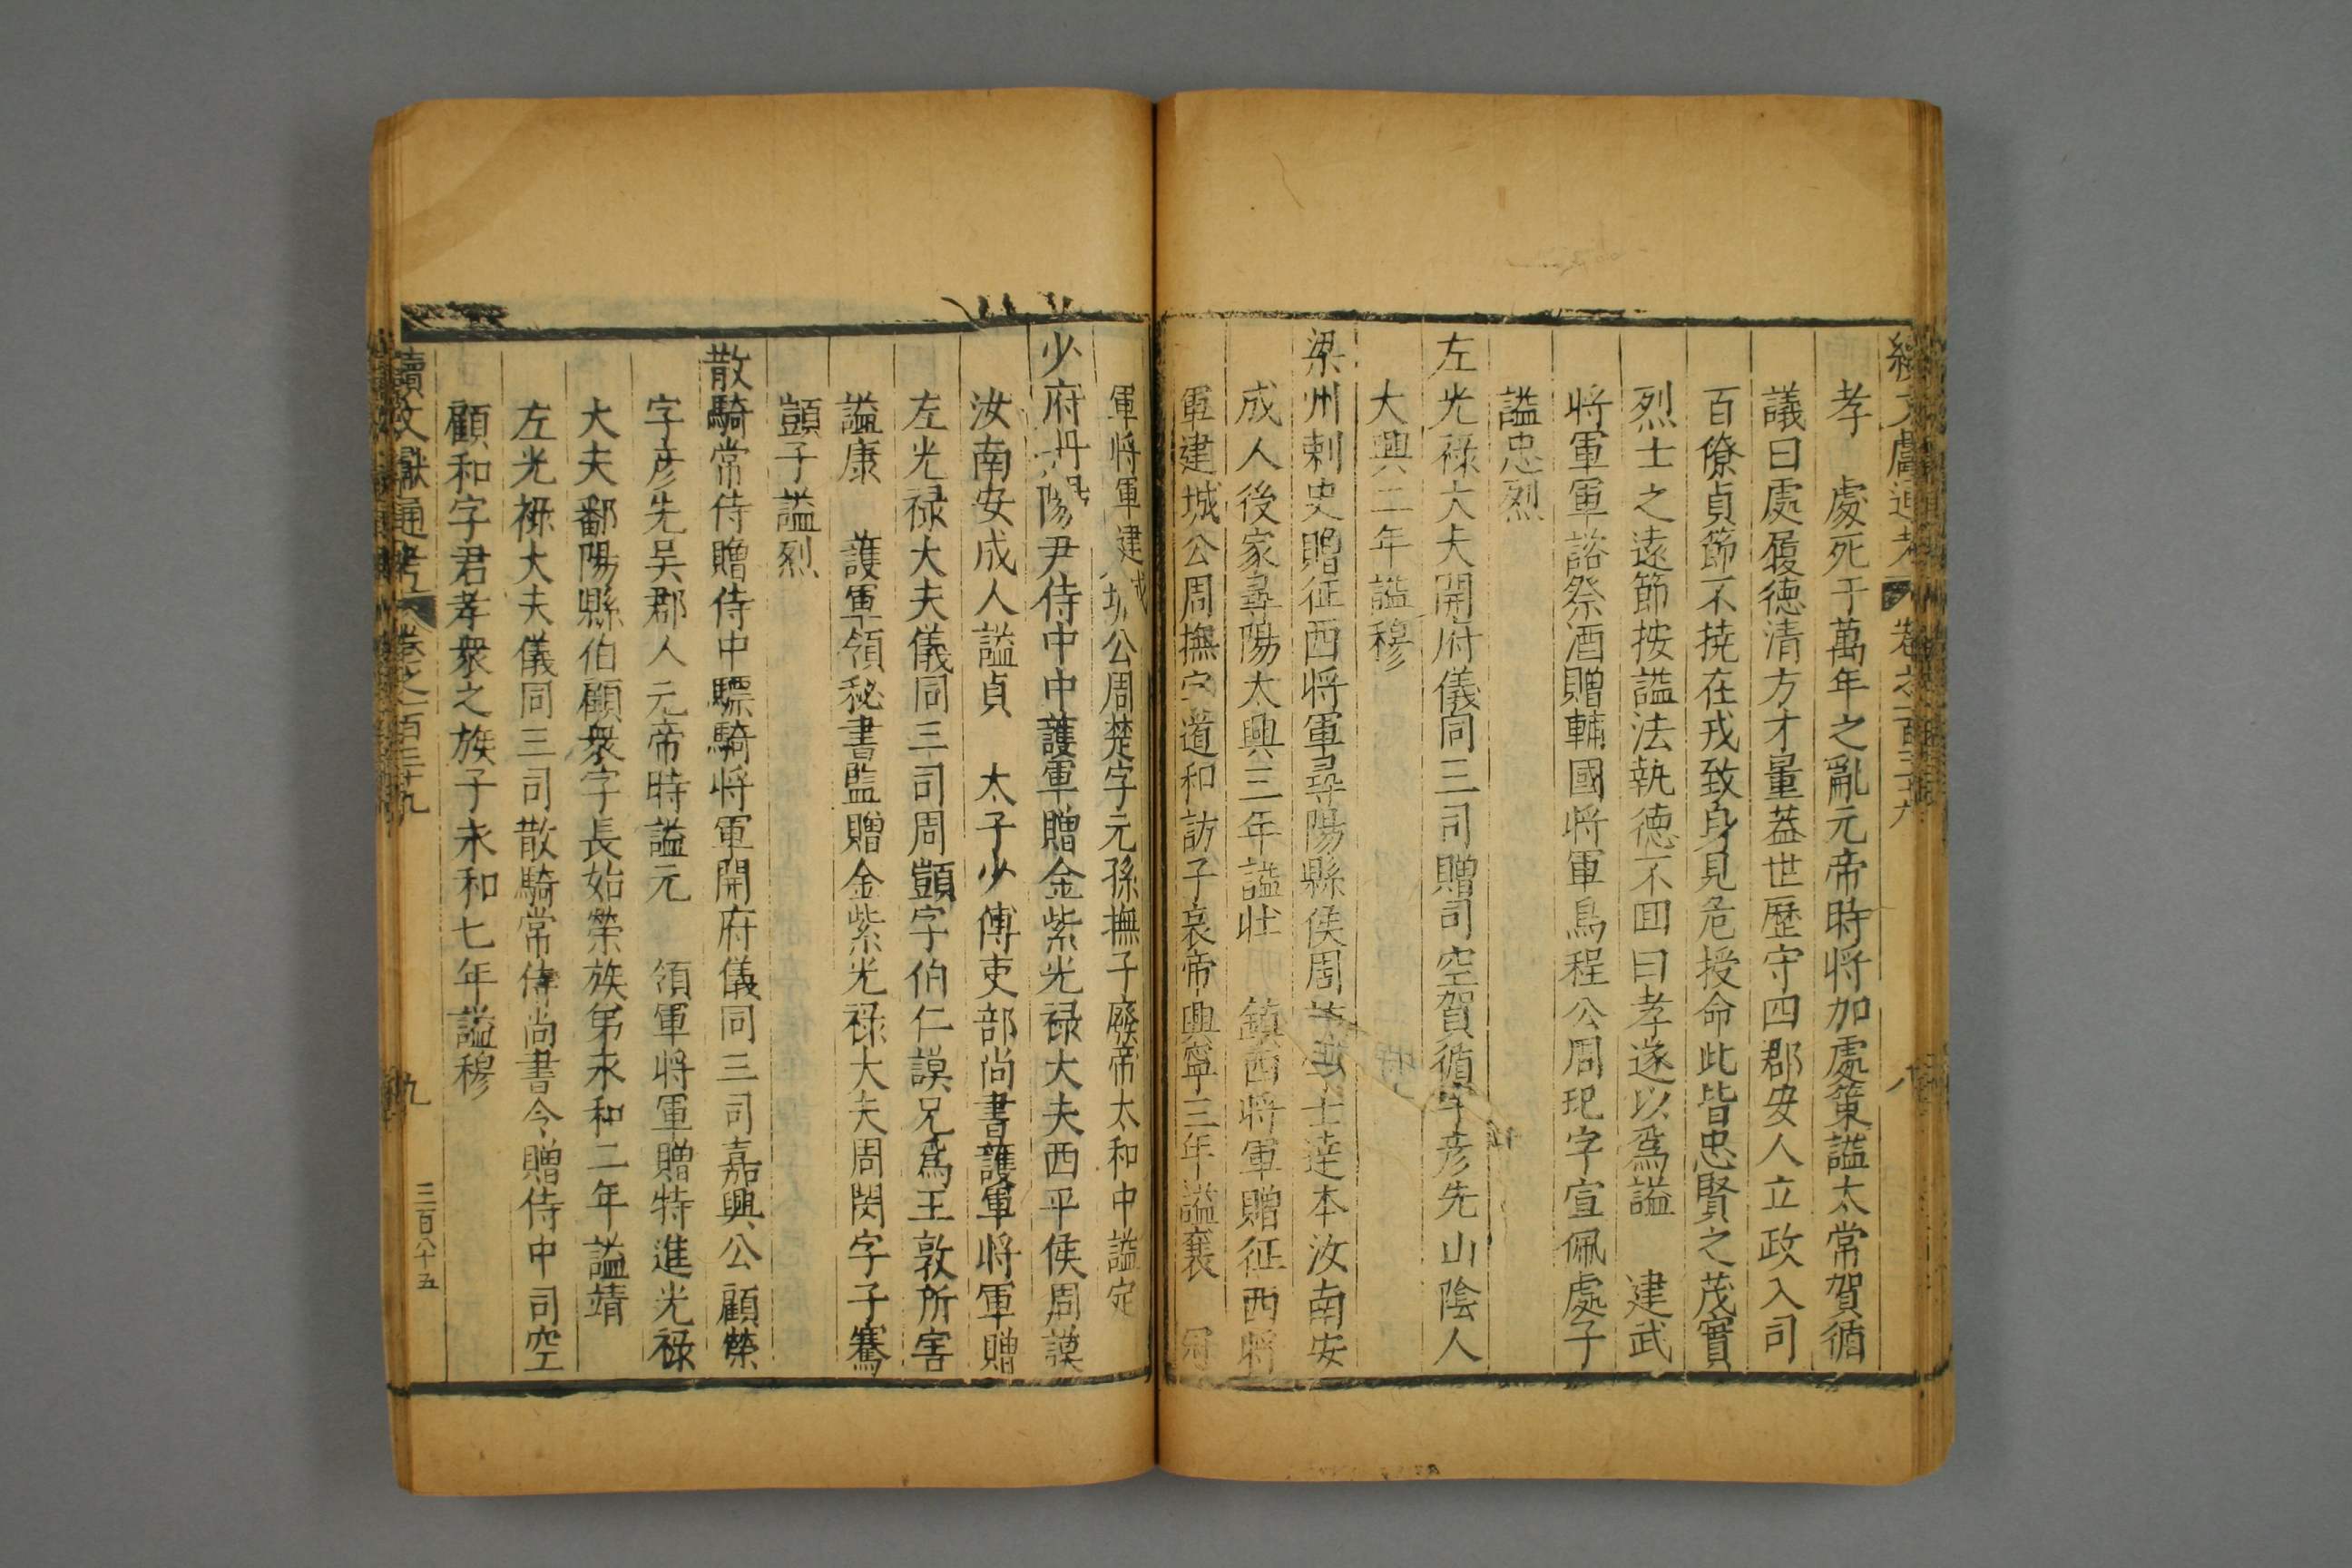 續文獻通考 卷之一百三十九 八
孝 處死于萬年之亂元帝時將加處策謚太常賀循
議曰處履德清方才量蓋世歷守四郡安人立政入司
百僚貞節不撓在戎致身見危授命此皆忠賢之茂實
烈士之遠節按謚法執德不回曰孝遂以爲謚 建武
將軍軍諮祭酒贈輔國將軍烏程公周玘字宣佩處子
謚忠烈
左光祿大夫開府儀同三司贈司空賀循字彥先山陰人
大興二年謚穆
梁州刺史贈征西將軍尋陽縣侯周訪字士達本汝南安
成人後家尋陽太興三年謚壯 鎮西將軍贈征西將
軍建城公周撫字道和訪子哀帝興寧三年謚襄 冠
軍將軍建城公周楚字元孫撫子廢帝太和中謚定
少府丹陽尹侍中中護軍贈金紫光祿大夫西平侯周謨
汝南安成人謚貞 太子少傅吏部尚書護軍將軍贈
左光祿大夫儀同三司周顗字伯仁謨兄爲王敦所害
謚康 護軍領秘書監贈金紫光祿大夫周閔字子騫
顗子謚烈
散騎常侍贈侍中驃騎將軍開府儀同三司嘉興公顧榮
字彥先吳郡人元帝時謚元 領軍將軍贈特進光祿
大夫鄱陽縣伯顧衆字長始榮族弟永和二年謚靖
左光祿大夫儀同三司散騎常侍尚書令贈侍中司空
顧和字君孝衆之族子永和七年謚穆
續文獻通考 卷之一百三十九 九 三百八十五